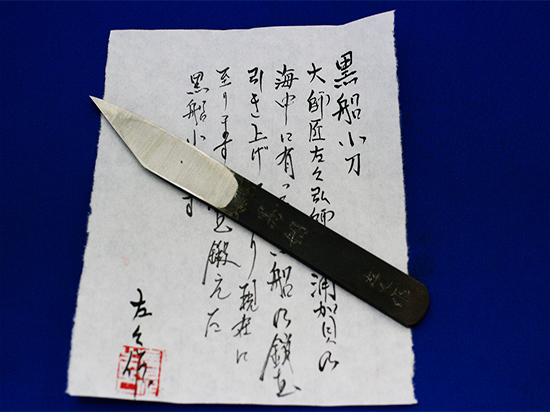 黒船小刀
大師匠左久弘師 浦賀の
海中に有っ 船の鎖を
引き上げ り現在に
至ります 鍛えた
黒船小 す
左久作
左久作